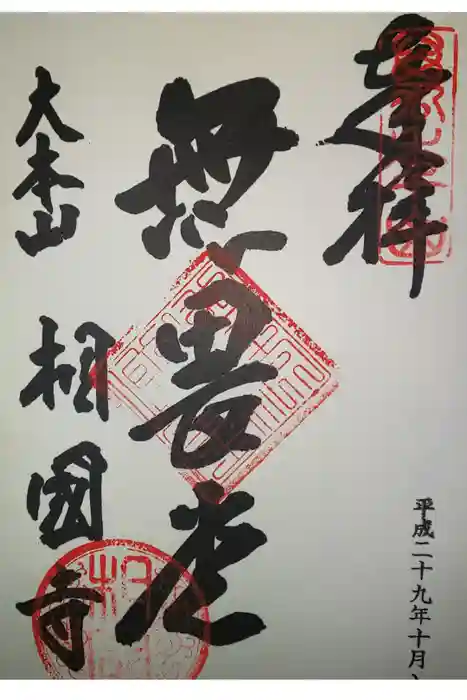 奉拝
平成二十九年十月
無畏堂
大本山 相國寺